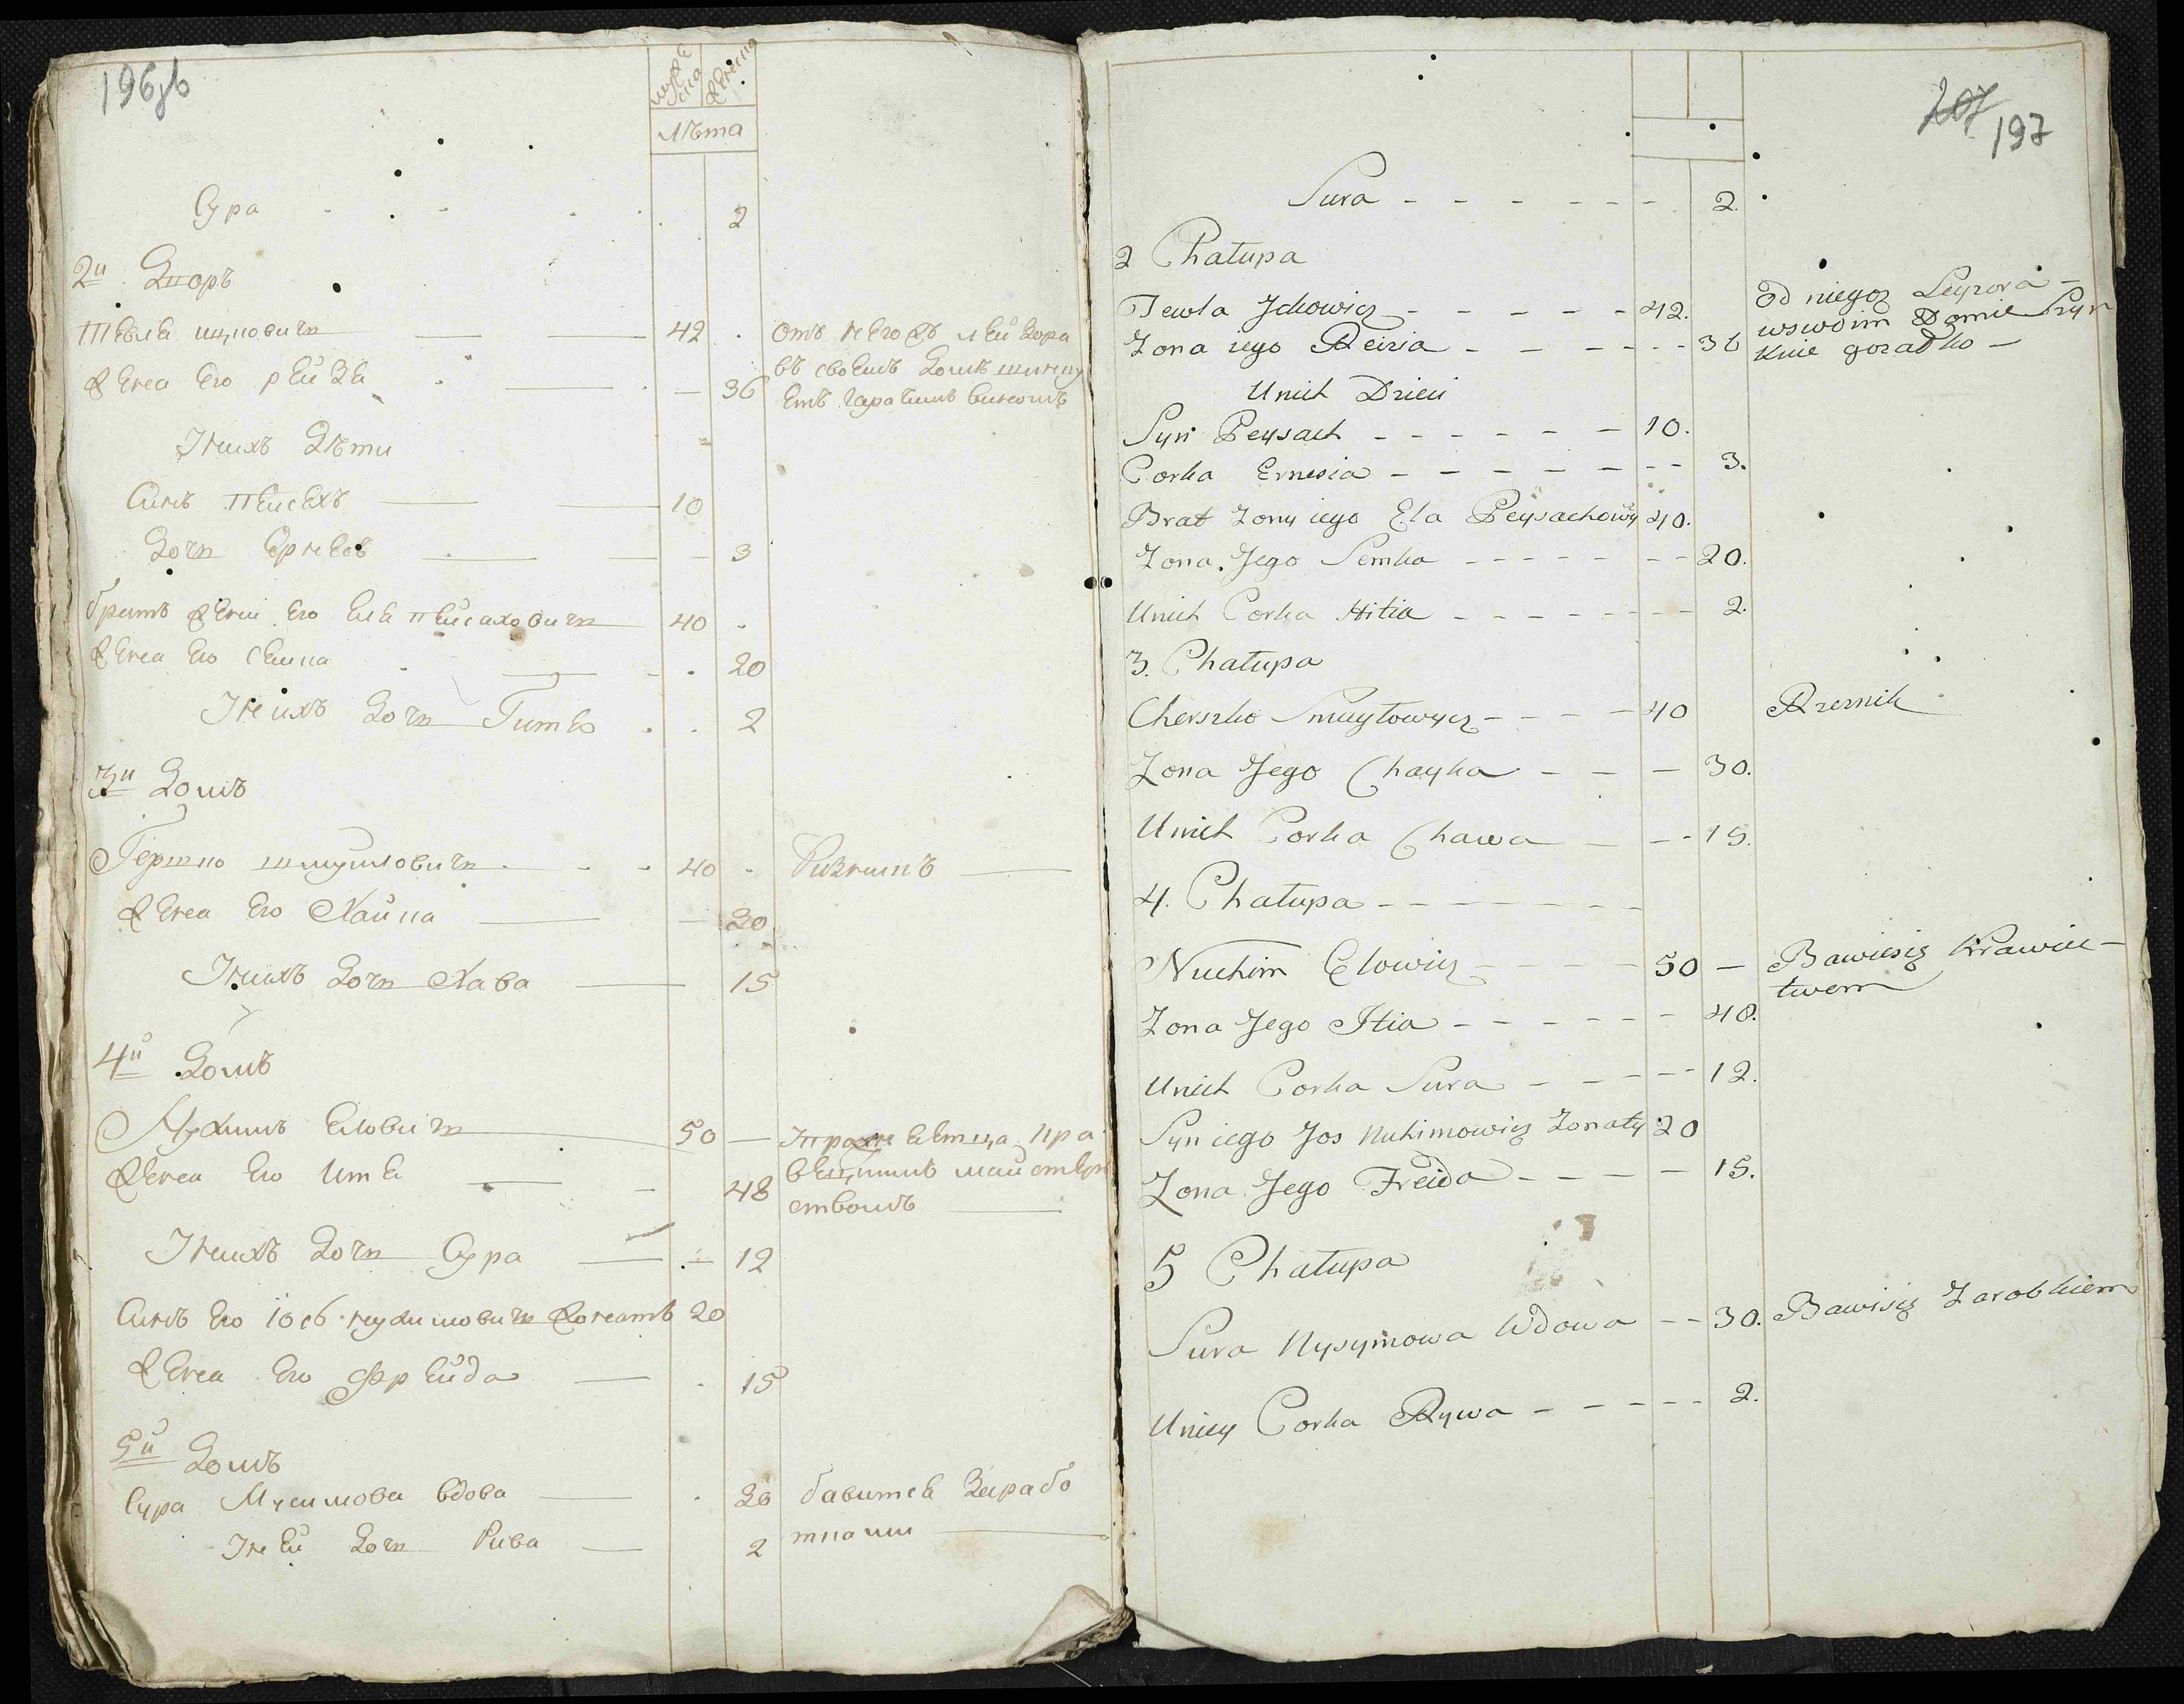 196зв
мужеска женска
Лѣта
Сура 2
2й Дворъ
Тевля ицковичъ 42
отъ негожъ Лейзора
жена его рейзя 36
въ своемъ домѣ шинку
етъ гарачимъ виномъ
У нихъ Дѣти
Синъ пейсахъ 10
Дочь Эрнеся 3
братъ жени его еля пейсаховичъ 40
жена его семка 20
У нихъ дочь Гитя 2
3й Домъ
Гершко шмуйловичъ 40 Ризникъ
жена его Хайка 30
У нихъ дочь Хава 15
4й Домъ
Нухимъ Еловичъ 50
жена его Итя 48
кравецкимъ майстер
ствомъ
У нихъ дочь Сура 12
Синъ его іосъ нухимовичъ жонатъ 20
жена его Фрейда 15
5й Домъ
Сура Нисимова вдова 30 бавитса зарабо
тками
У ней дочь Рива 2
207 197
Sura - - - - - - - 2.
2 Chałupa
Tewla Jckowicz - - - - - 42.
Od niegoż Leyzora -
wswoim Domie Szyn
kuie gorałko -
Zona iego Reizia - - - - - 36
Unich Dzieci
Syn Peysach - - - - - - 10.
Corka Ernesia - - - - - - - 3.
Brat Zony iego Ela Peysachowicz 40.
Zona Jego Semka - - - - - - - 20.
Unich Corka Hitia - - - - - - - 2.
3. Chałupa
Cherszko Smuylowicz - - - - 40 Rzeznik
Zona Jego Chayka - - - 30.
Unich Corka Chawa - - - 15.
4. Chałupa - - - - - - -
Nuchim Elowicz - - - - 50 - Bawiesię Krawiec-
twem
Zona Jego Itia - - - - - - 48.
Unich Corka Sura - - - - - 12.
Syn iego Jos Nuhimowicz Zonaty 20
Zona Jego Freida - - - - 15.
5 Chałupa
Sura Nysymowa Wdowa - - 30. Bawisię Zarobkiem
Uniey Corka Rywa - - - - - 2.